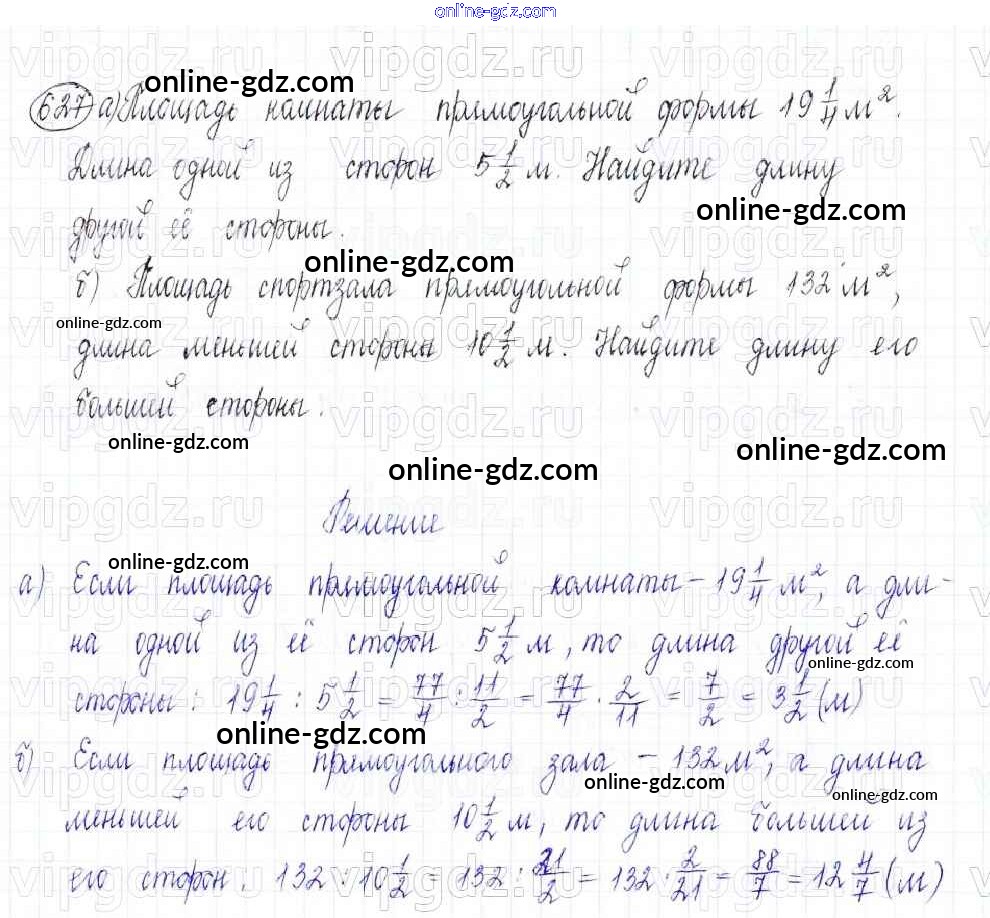 online-gdz.com
online-gdz.com
627 а) Площадь комнаты прямоугольной формы 19 1/4 м².
Длина одной из сторон 5 1/2 м. Найдите длину
online-gdz.com
другой её стороны.
online-gdz.com
б) Площадь спортзала прямоугольной формы 132 м²,
online-gdz.com
длина меньшей стороны 10 1/2 м. Найдите длину его
большей стороны.
online-gdz.com
online-gdz.com
online-gdz.com
Решение
online-gdz.com
а) Если площадь прямоугольной комнаты – 19 1/4 м², а дли-
на одной из её сторон 5 1/2 м, то длина другой её
online-gdz.com
стороны: 19 1/4 : 5 1/2 = 77/4 : 11/2 = 77/4 · 2/11 = 7/2 = 3 1/2 (м)
online-gdz.com
б) Если площадь прямоугольного зала – 132 м², а длина
online-gdz.com
online-gdz.com
меньшей его стороны 10 1/2 м, то длина большей из
его сторон: 132 : 10 1/2 = 132 : 21/2 = 132 · 2/21 = 88/7 = 12 4/7 (м)
vipgdz.ru vipgdz.ru vipgdz.ru